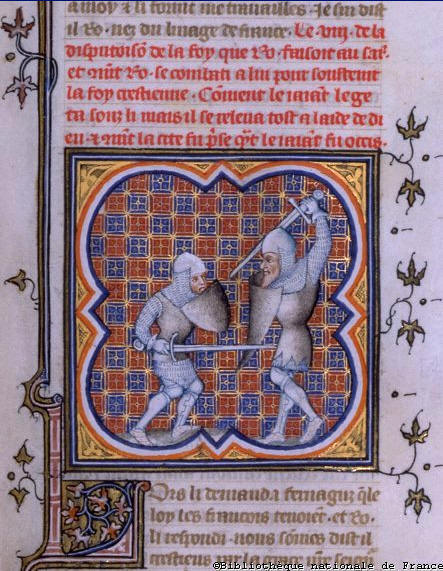 a moy & li firent me travailles. Je sui dist
il Ro. nez du linage de france. Le viii. de la
disputoison de la foy que Ro. faisoit au sar.
et dist Ro. se combati a lui pour soustenir
la foy crestienne. Coment le iaiant le ge
ta souz li mais il se releva tost a laide de di
eu. & dist la cite fu prise qant le iaiant fu occis.
Lors li demanda fernaguz qele
loy les francois tenoient. et Ro.
li respondi. nous somes dist il
crestiens par la grace
©Bibliothèque nationale de France